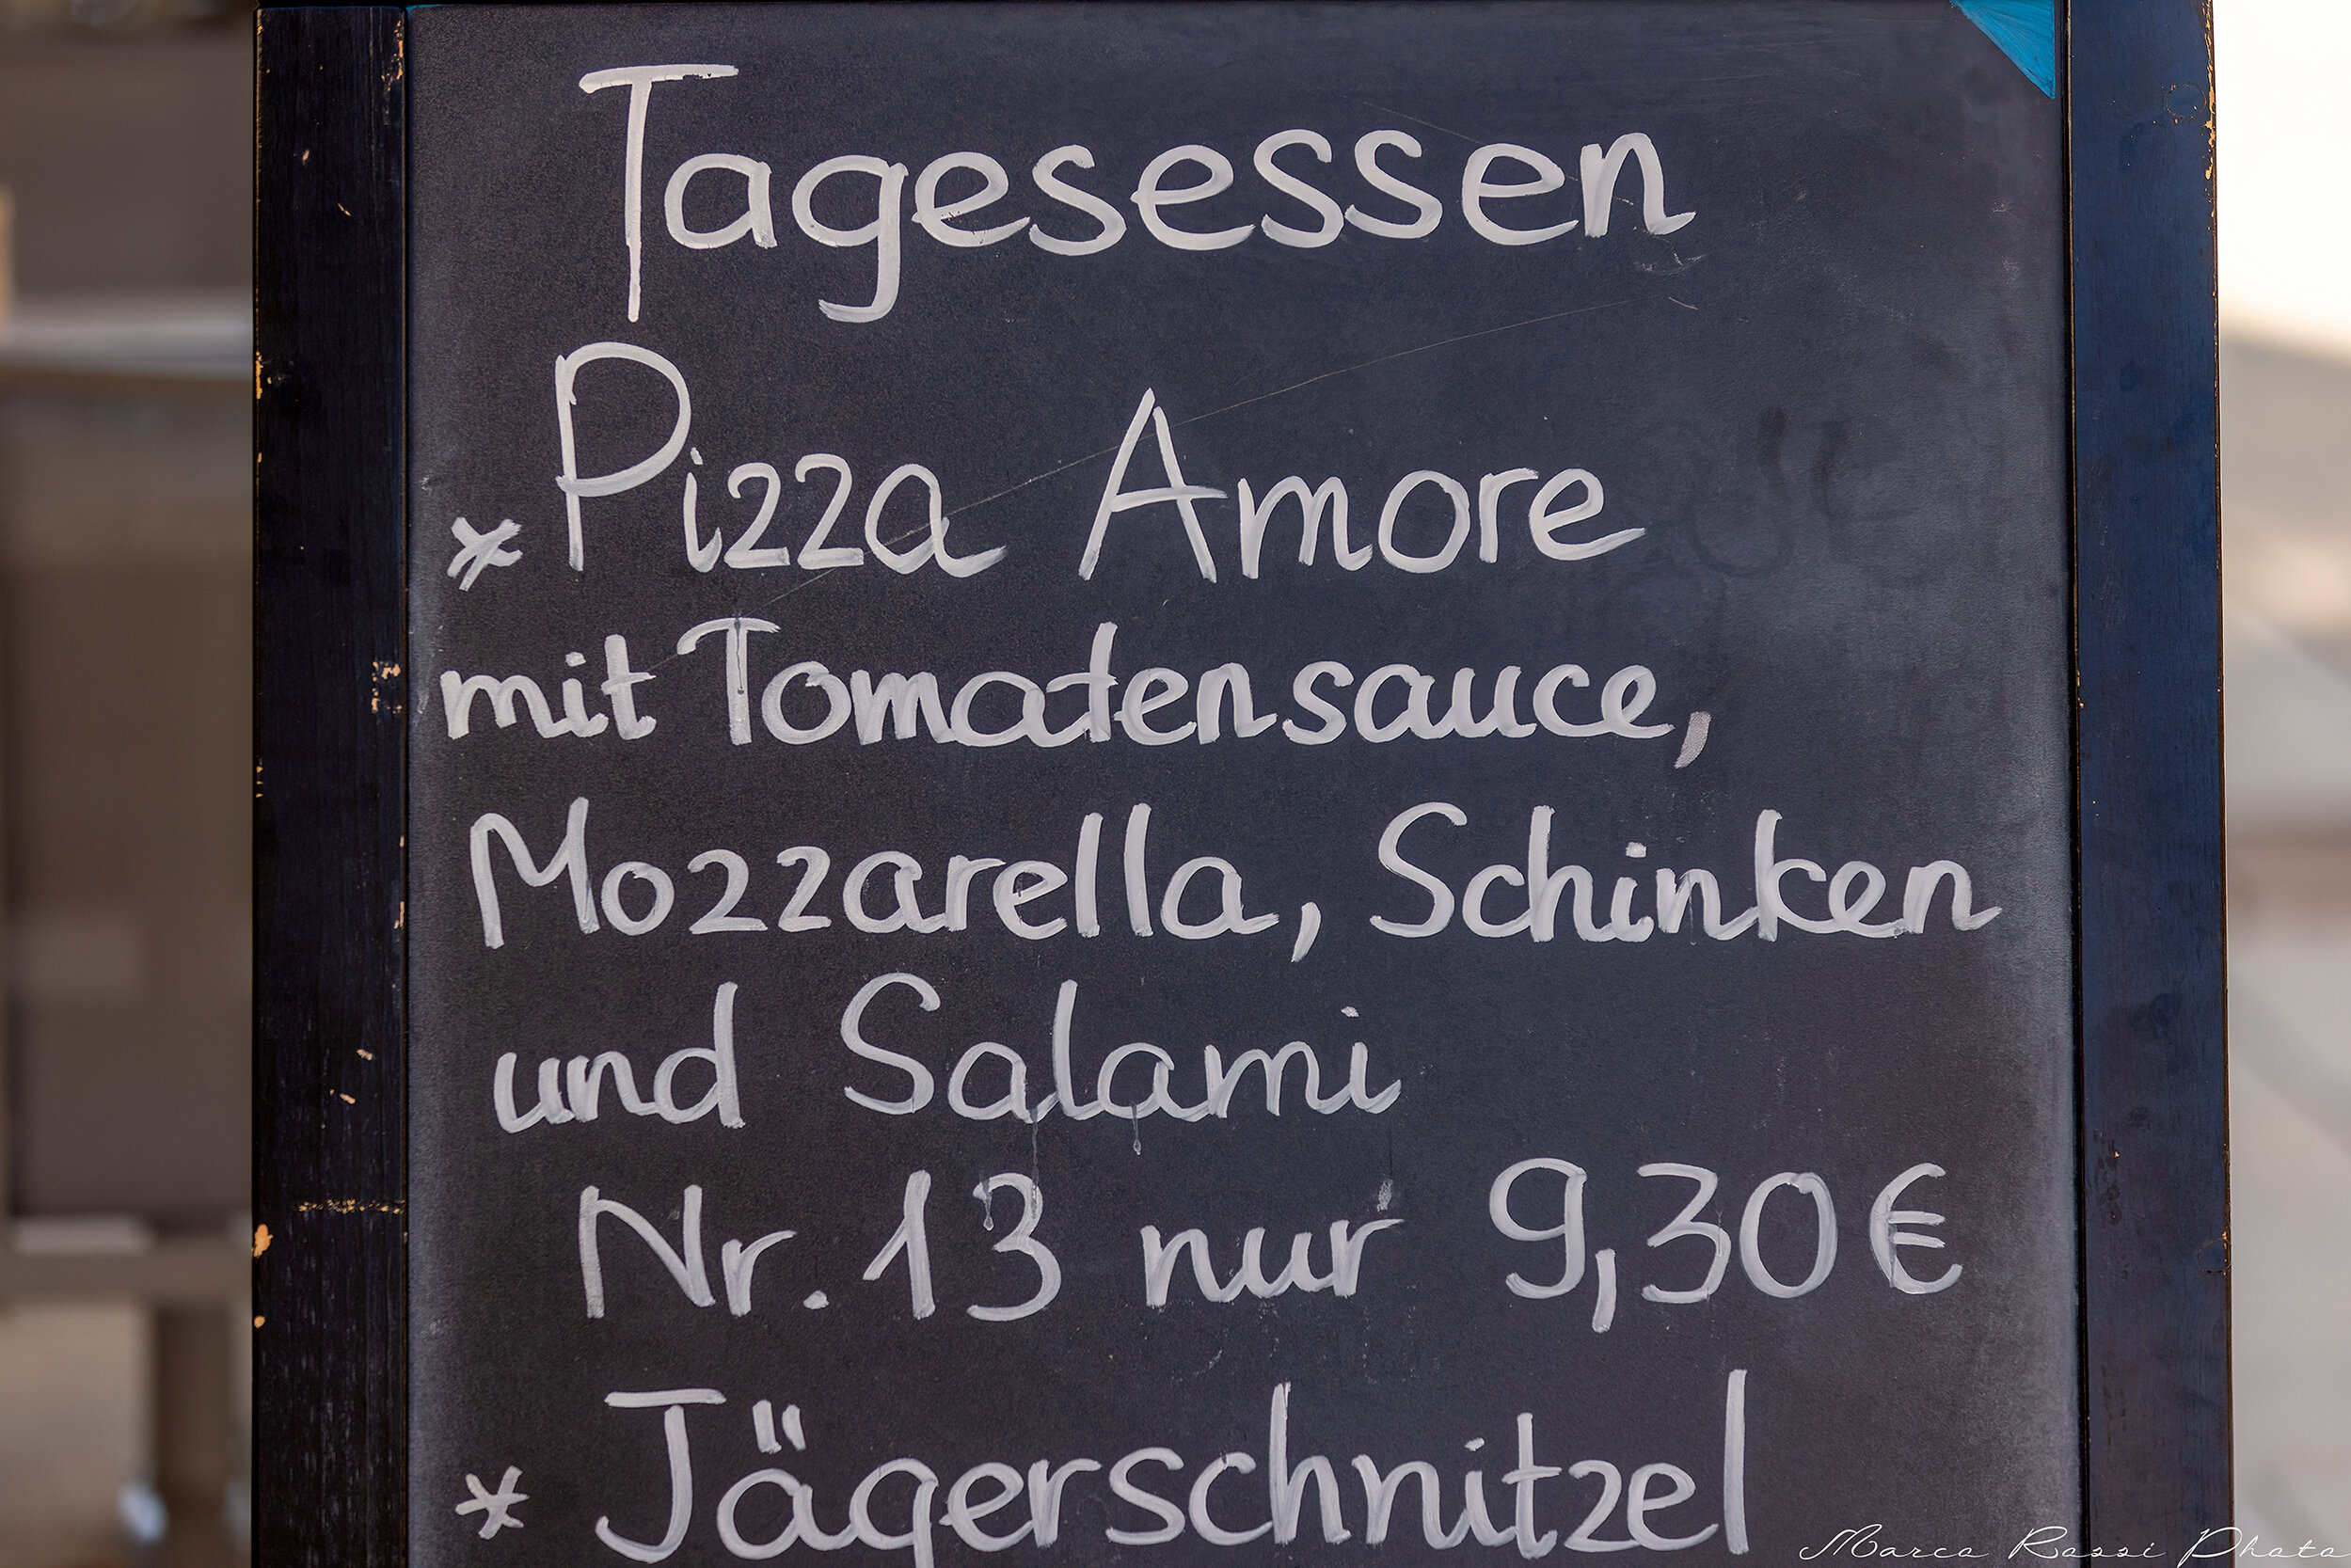 Tagesessen
* Pizza Amore
mit Tomatensauce,
Mozzarella, Schinken
und Salami
Nr. 13 nur 9,30 €
* Jägerschnitzel
Marco Rossi Photo